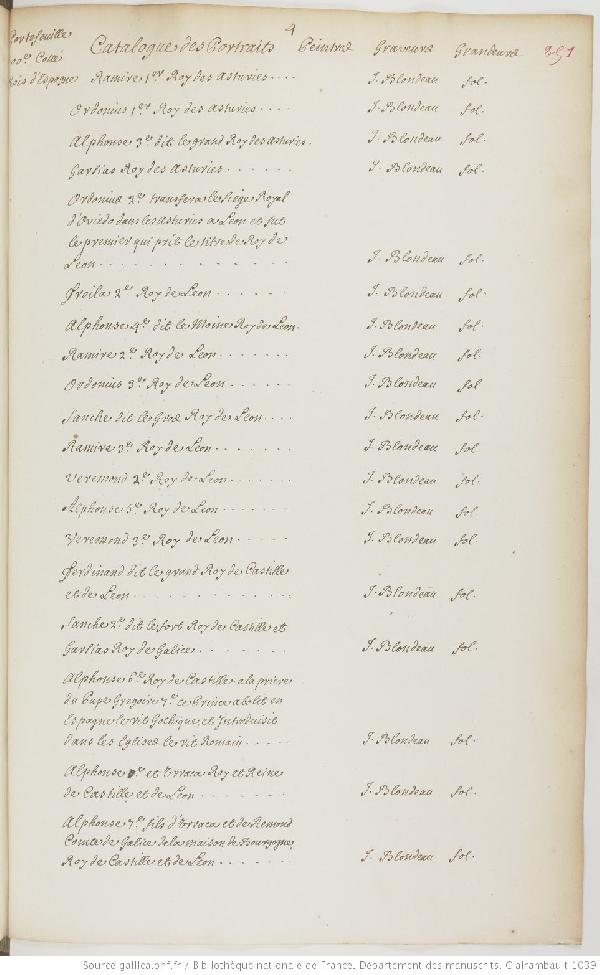 4
Portefeuille
Cotté
Rois d'Espagne
Catalogue des Portraits Peintres Graveurs Grandeurs 351
Ramire 1er Roy des Asturies . . . . J. Blondeau fol.
Ordonius 1er Roy des Asturies . . . . J. Blondeau fol.
Alphonse 3e dit le grand Roy des Asturies. J. Blondeau fol.
Garsias Roy des Asturies . . . . . . J. Blondeau fol.
Ordonius 2e transfera le siége Royal
d'Oviedo dans les Asturies a Leon et fut
le premier qui prit le titre de Roy de
Leon . . . . . . . . . . . . J. Blondeau fol.
Froila 2e Roy de Leon . . . . . . J. Blondeau fol.
Alphonse 4e dit le Moine Roy de Leon. J. Blondeau fol.
Ramire 2e Roy de Leon . . . . . . J. Blondeau fol.
Ordonius 3e Roy de Leon . . . . . J. Blondeau fol
Sanche dit le Gros Roy de Leon . . . . J. Blondeau fol.
Ramire 3e Roy de Leon . . . . . . J. Blondeau fol
Veremond 2e Roy de Leon . . . . . J. Blondeau fol.
Alphonse 5e Roy de Leon . . . . . . J. Blondeau fol.
Veremond 3e Roy de Leon . . . . . J. Blondeau fol.
Ferdinand dit le grand Roy de Castille
et de Leon . . . . . . . . . . . J. Blondeau fol.
Sanche 2e dit le fort Roy de Castille et
Garsias Roy de Galice . . . . . . . J. Blondeau fol.
Alphonse 6e Roy de Castille a la priere
du Pape Gregoire 7e ce Prince abolit en
Espagne le rit Gothique, et Introduisit
dans les Eglises le rit Romain . . . . . J. Blondeau fol.
Alphonse et Urraca Roy et Reine
de Castille et de Leon . . . . . . . J. Blondeau fol.
Alphonse 7e fils d'Urraca et de Remond
Comte de Galice de la maison de Bourgogne,
Roy de Castille et de Leon . . . . . . J. Blondeau fol.
Source gallica.bnf.fr / Bibliothèque nationale de France. Département des manuscrits. Clairambault 1039